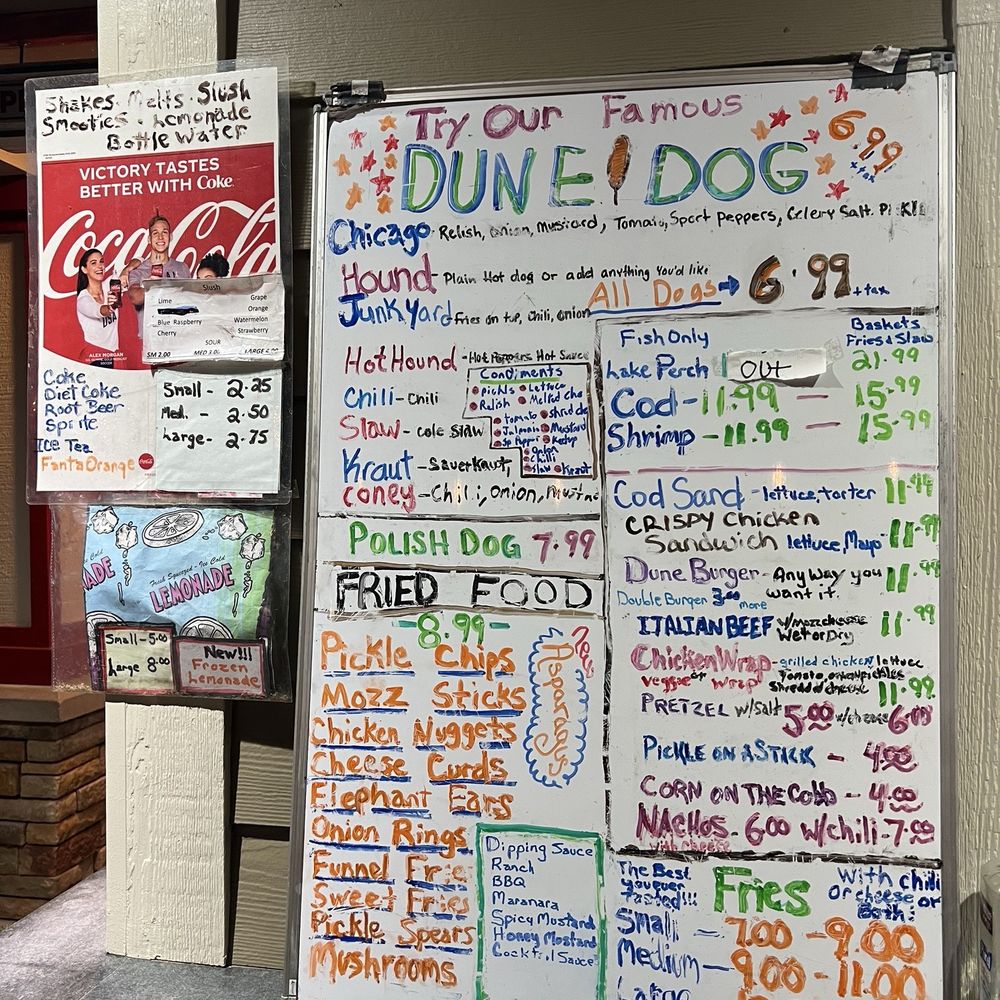 Shakes. Melts. Slush
Smooties. Lemonade
Bottle Water
VICTORY TASTES
BETTER WITH Coke
Coca-Cola
USA
ALEX MORGAN
Slush
Lime Grape
Orange
Blue Raspberry Watermelon
Cherry Strawberry
SOUR
SM 2.00 MED 3.00 LARGE 4.00
Coke
Diet Coke
Root Beer
Sprite
Ice Tea
Fanta Orange
Small - 2.25
Med. - 2.50
Large - 2.75
Fresh Squeezed - Ice Cold
LEMONADE
Small - 5.00
Large 8.00
New!!!
Frozen
Lemonade
Try Our Famous
DUNE DOG
6.99
+tax
Chicago - Relish, Onion, Mustard, Tomato, Sport Peppers, Celery Salt.
Hound Plain Hot dog or add anything You'd like
All Dogs 6.99 +tax
Junkyard Fries on top, Chili, Onion
Hot Hound - Hot Peppers Hot Sauce
Chili - Chili
Slaw - Cole Slaw
Kraut - Sauerkaut,
Coney - Chili, Onion,
Condiments
Pickls Lettuce
Relish Melted che
tomato shred che
Jalpnain Mustard
Sp Pepper Ketup
Onion
Chilli
Slaw Kraut
POLISH DOG 7.99
FRIED FOOD
- 8.99 -
Pickle Chips
Mozz Sticks
Chicken Nuggets
Cheese Curds
Elephant Ears
Onion Rings
Funnel Fries
Sweet Fries
Pickle Spears
Mushrooms
New
Asparagus
Dipping Sauce
Ranch
BBQ
Maranara
Spicy Mustard
Honey Mostard
Cocktail Sauce
Fish Only Baskets
Fries & Slaw
Lake Perch OUT 21.99
Cod - 11.99 — 15.99
Shrimp - 11.99 — 15.99
Cod Sand - lettuce, tarter 11.99
CRISPY Chicken
Sandwich lettuce, Mayo 11.99
Dune Burger - Any way you want it. 11.99
Double Burger 3.00 more
ITALIAN BEEF w/mozz cheese
Wet or Dry 11.99
Chicken Wrap - grilled chicken, lettuce
or
Veggie Wrap Tomato, onion, pickles
Shredded cheese 11.99
PRETZEL w/Salt 5.00 w/cheese 6.00
PICKLE ON A STICK - 4.00
CORN ON THE COBB - 4.00
NACHOS - 6.00 w/chili - 7.00
with cheese
The Best
you ever
Tasted!!!
Fries
With chili
or cheese or
Both:
Small 7.00 - 9.00
Medium — 9.00 - 11.00
Large